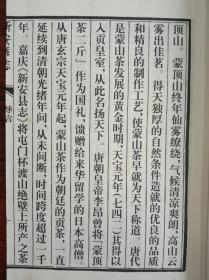 顶山。蒙顶山终年仙雾缭绕，气候清凉爽朗，高山云
雾出佳茗。得天独厚的自然条件造就的优良的品质
和精良的制作工艺，使蒙山茶早就为天下称道。唐代
是蒙山茶发展的黄金时期，天宝元年（七四二）其得以
入贡皇室，从此名扬天下。唐朝皇帝李昂曾将『蒙顶
茶二斤』作为国礼，馈赠给来华留学的日本高僧。
从唐玄宗天宝元年起，蒙山茶作为朝廷的贡茶，一直
延续到清朝光绪年间，从未间断，时间跨度超过一千
年。嘉庆《新安县志》将屯门杯渡山绝壁上所产之茶